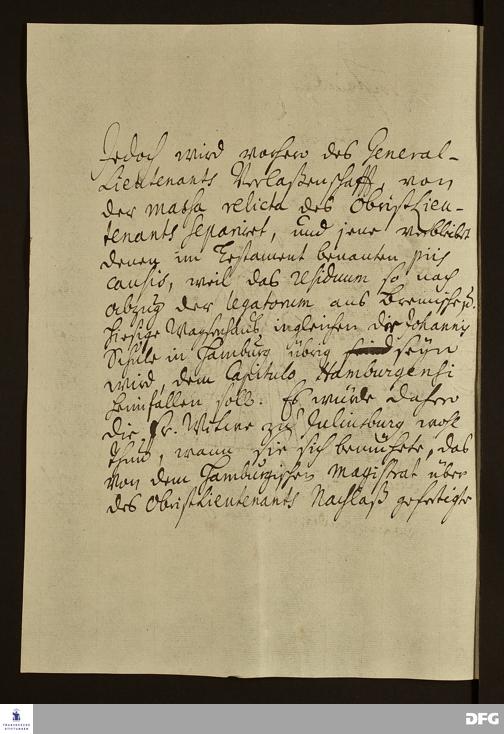 Jedoch wird vorhero des General-
Lieutenants Verlaßenschafft von
der massa relicta des Obristlieu-
tenants separiret, und jene verbleibet
denen im Testament benanten piis
causis, weil das residuum so nach
abzug der legatorum ans Bremische,
hiesige Waysenhaus, ingleichen die Johannis
Schule in Hamburg übrig seyn
wird, dem Capitulo Hamburgensi
heimfallen soll. Es würde dahero
die Fr. Witwe zu Juliusburg wohl
thun, wann sie sich bemühete, das
von dem Hamburgischen Magistrat über
des Obristlieutenants Nachlaß gefertigte
FRANCKESCHE
STIFTUNGEN
DFG